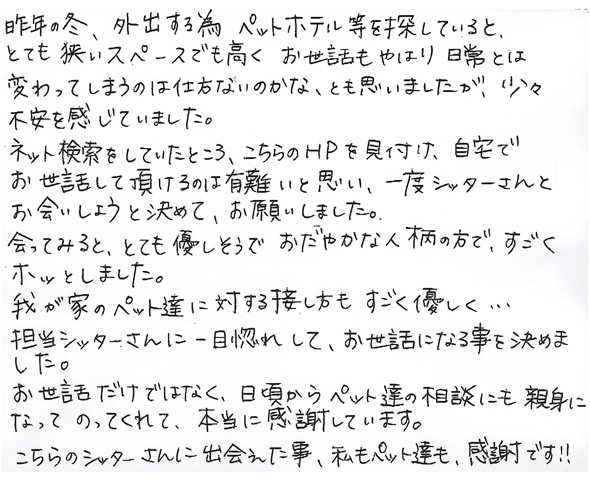 昨年の冬、外出する為 ペットホテル等を探していると、
とても狭いスペースでも高く お世話もやはり 日常とは
変わってしまうのは仕方ないのかな、とも思いましたが、少々
不安を感じていました。
ネット検索をしていたところ、こちらのHPを見付け、自宅で
お世話して頂けるのは有難いと思い、一度シッターさんと
お会いしようと決めて、お願いしました。
会ってみると、とても優しそうで おだやかな人柄の方で、すごく
ホッとしました。
我が家のペット達に対する接し方も すごく優しく…
担当シッターさんに一目惚れして、お世話になる事を決めま
した。
お世話だけではなく、日頃からペット達の相談にも 親身に
なって のってくれて、本当に感謝しています。
こちらのシッターさんに出会えた事、私もペット達も、感謝です!!